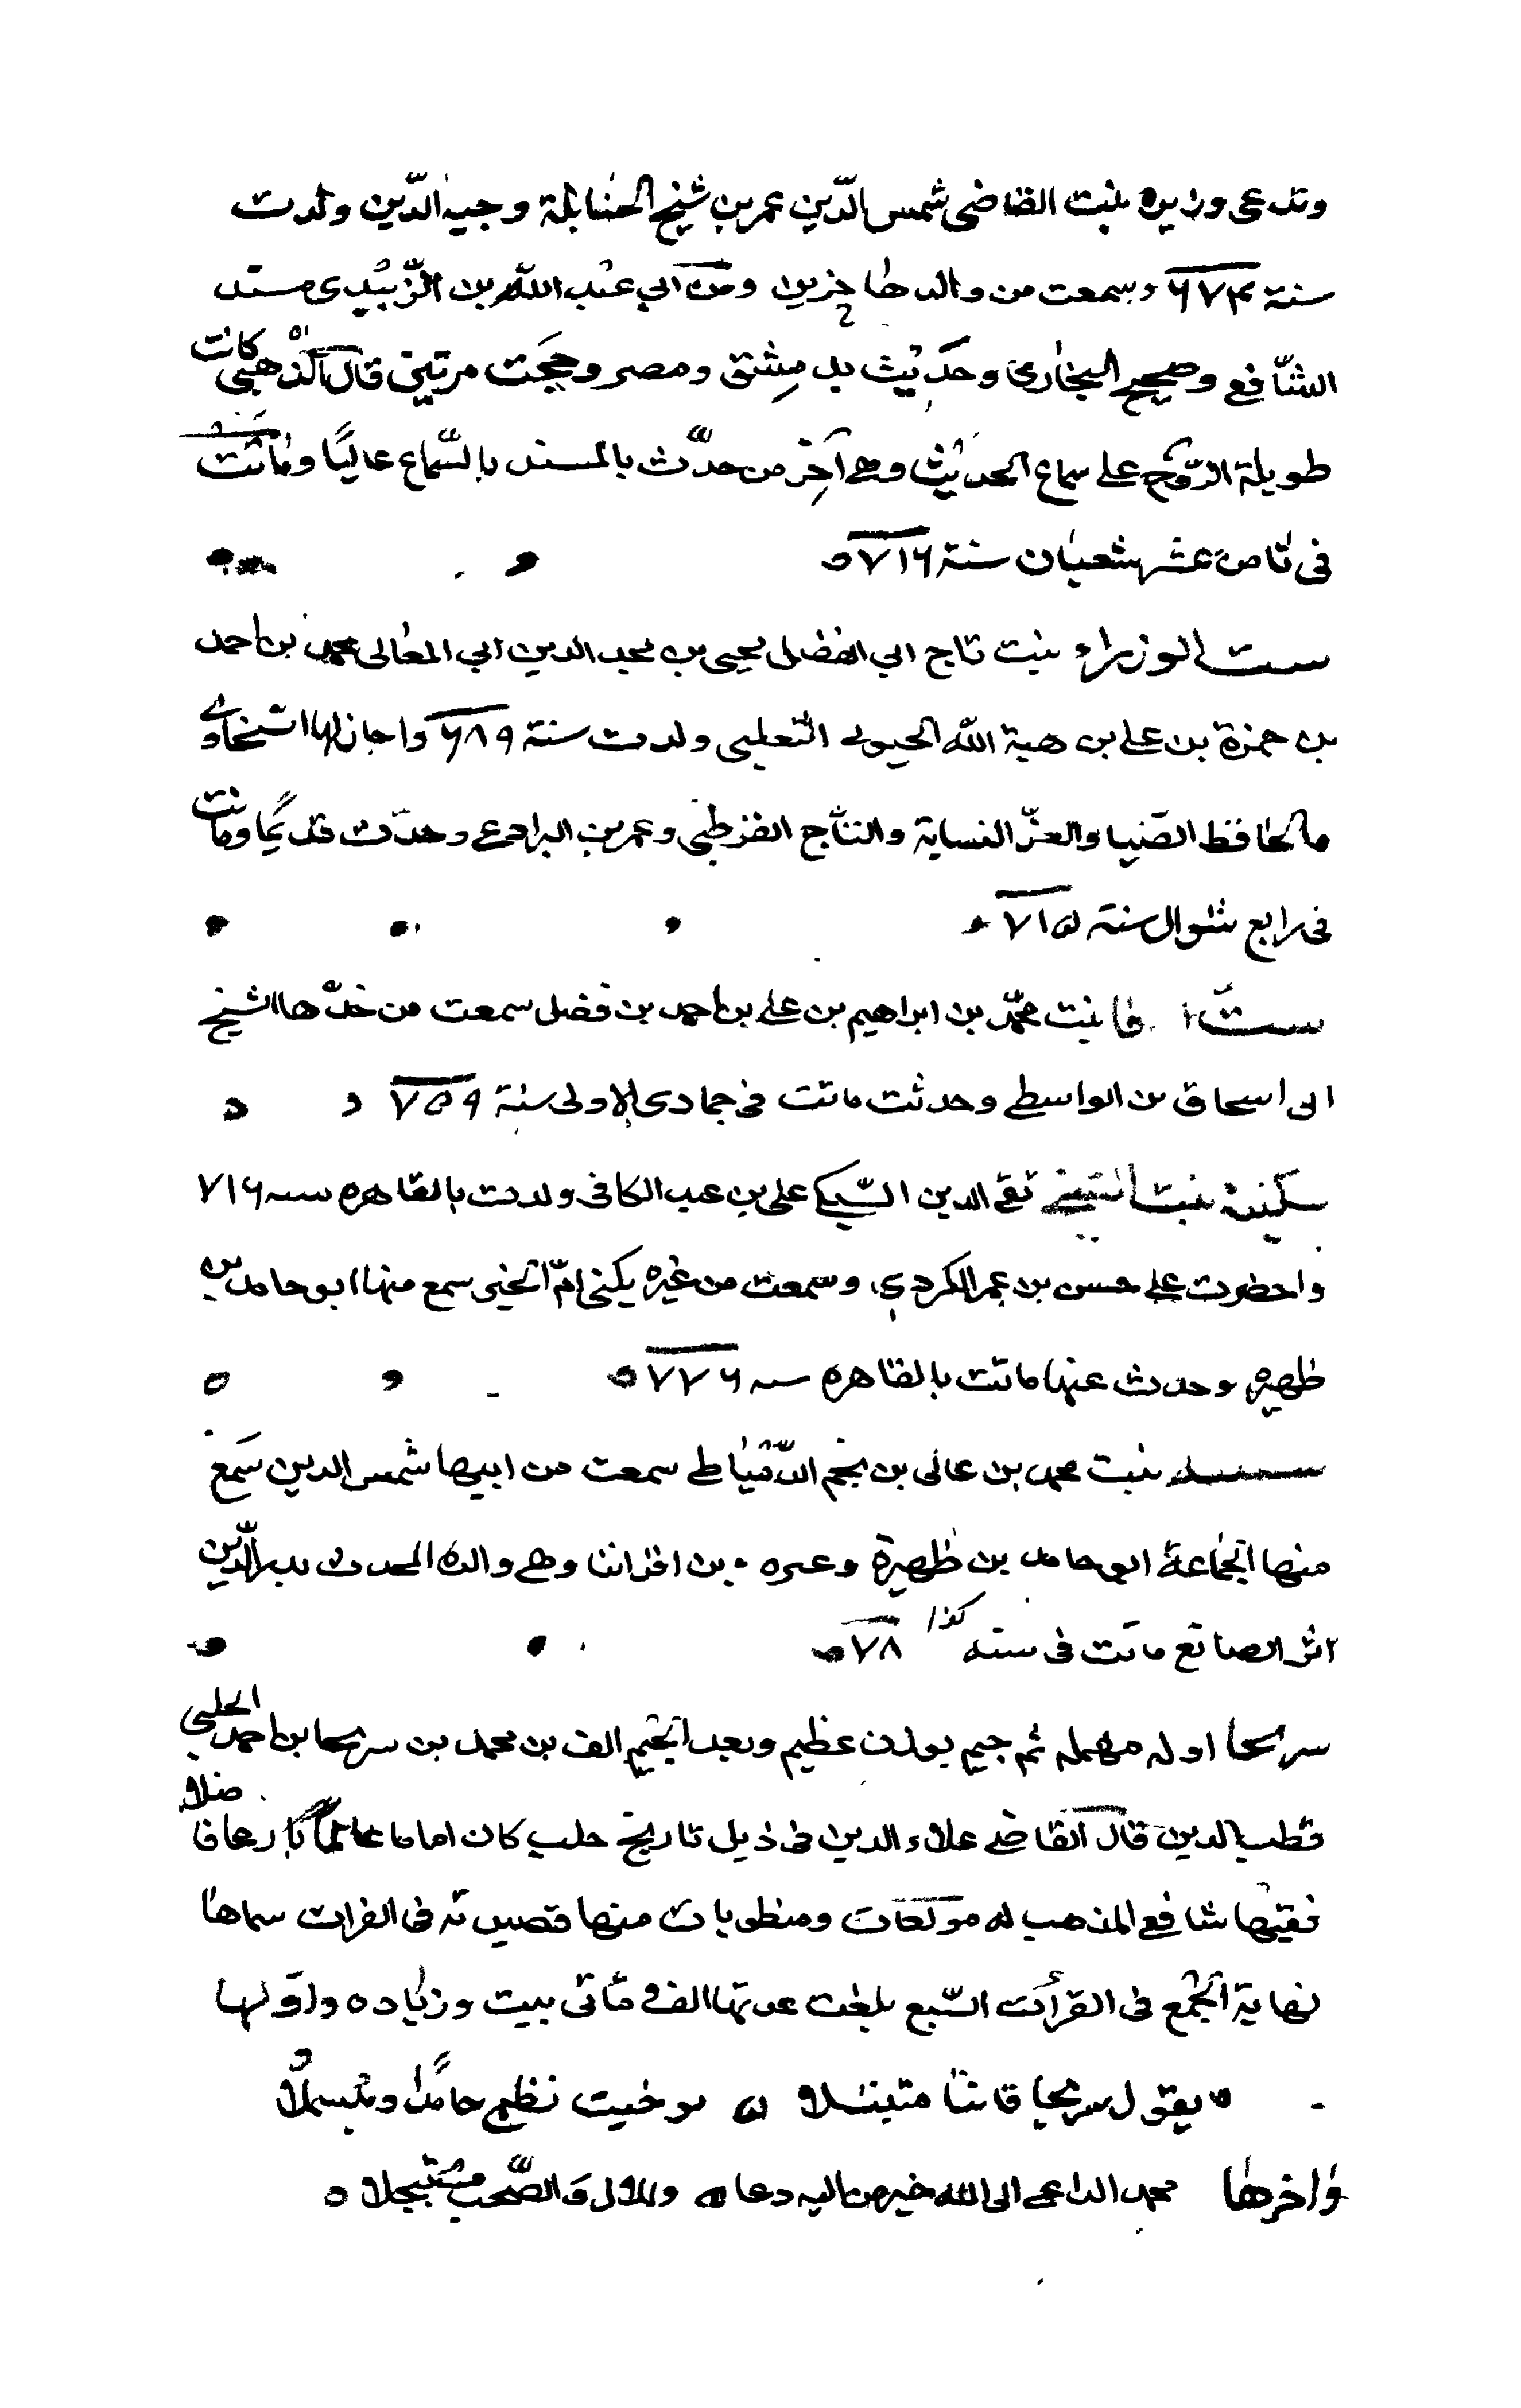 وتدعى وزيره بنت القاضى شمس الدّين عمر بن شيخ الحنابلة وجيه الدّين ولدت
سنة ٦٧٣ وسمعت من والدها جزين ومن ابي عبد اللّه بن الزّبيدى مسند
الشّافعي وصحيح البخاري وحدثت بدمشق ومصر وحجت مرتين قال الذهبي كانت
طويلة الرّوح على سماع الحديث وهي آخر من حدّث بالمسند بالسّماع عاليًا وماتت
فى ثامن عشر شعبان سنة ٧١٦
ست الوزراء بنت تاج ابي الفضل يحيى بن مجد الدين ابي المعالى محمد بن احمد
بن حمزة بن على بن هبة اللّه الحبوبي الثعلبي ولدت سنة ٦٨٩ واجاز لها السّخاوي
والحافظ الضّيا والعزّ النسابة والتّاج القرطبي وعمر بن البرادعي وحدثت قديمًا وماتت
فى رابع شوال سنة ٧١٥
ستّ بنت محمّد بن ابراهيم بن على بن احمد بن فضل سمعت من جدّها الشيخ
ابى اسحاق بن الواسطي وحدثت ماتت فى جمادى الاولى سنة ٧٥٩
سكينة بنت الشيخ تقي الدين السّبكي على بن عبد الكافى ولدت بالقاهره سنه ٧١٦
واحضرت على حسن بن عمر الكردي وسمعت من غيره يكنى امّ الخير سمع منها ابو حامد بن
ظهيره وحدث عنها ماتت بالقاهره سنه ٧٧٦
بنت محمد بن عالى بن نجم الدّمياطي سمعت من ابيها شمس الدين سمع
منها الجماعة ابو حامد بن ظهيرة وغيره من اقراننا وهي والدة المحدث بدر الدّين
الصائغ ماتت فى سنه كذا ٧٨
سريجا اوله مهمله ثم جيم بوزن عظيم وبعد الجيم الف بن محمد بن سريجا بن احمد الحلبي
قطب الدين قال القاضي علاء الدين فى ذيل تاريخ حلب كان اماما عالمًا بارعا فاضلا
فقيها شافعي المذهب له مولفات ومنظومات منها قصيدته فى القرات سماها
نهاية الجمع فى القرأت السّبع بلغت عدتها الف ومأتى بيت وزياده واوّلها
يقول سريجا قانتا متبتلا ۝ توخيت نظمي حامدًا ومبسملًا
واخرها محمد الداعى الى اللّه خير من اليه دعا ۝ والال والصّحب